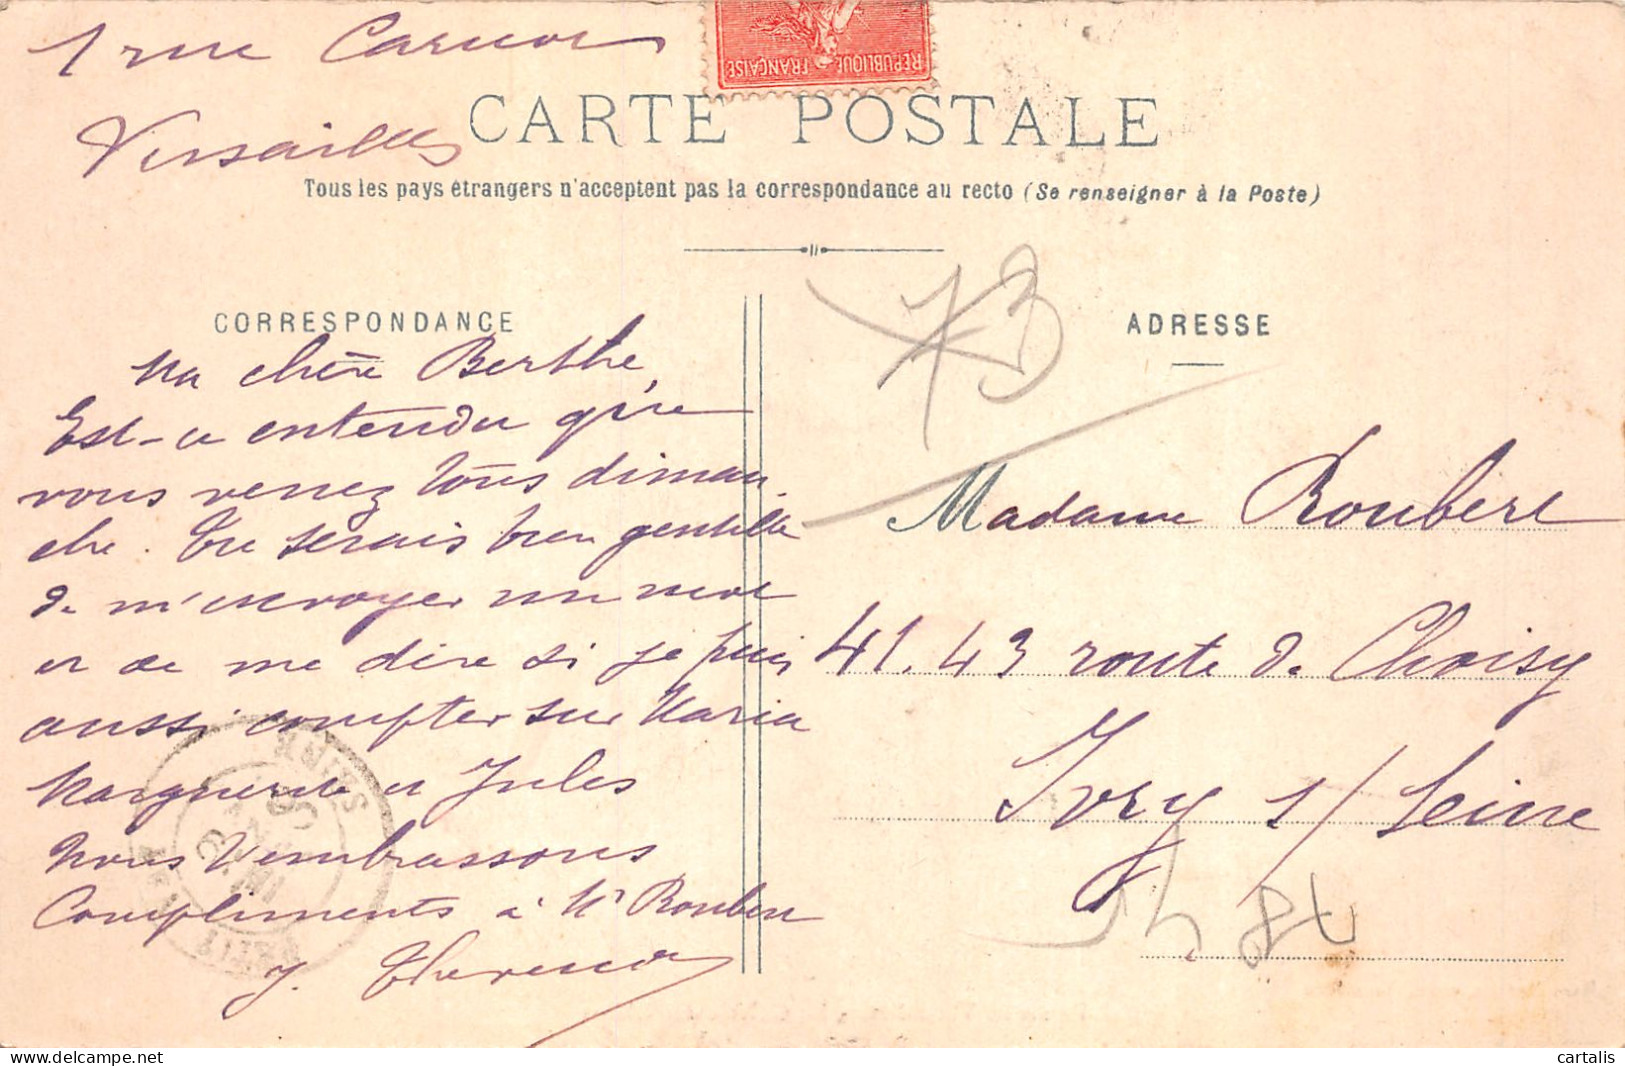 1 rue Carnot
Versailles
REPUBLIQUE FRANÇAISE
CARTE POSTALE
Tous les pays étrangers n'acceptent pas la correspondance au recto (Se renseigner à la Poste)
CORRESPONDANCE
Ma chère Berthe,
Est-ce entendu que
vous venez tous diman
che. Tu serais bien gentille
de m'envoyer un mot
et de me dire si je puis
aussi compter sur Maria
Marguerite et Jules
Nous t'embrassons
Compliments à Mr Roubert
J.
ADRESSE
Madame Roubert
41.43 route de Choisy
Ivry s/ Seine
cartalis